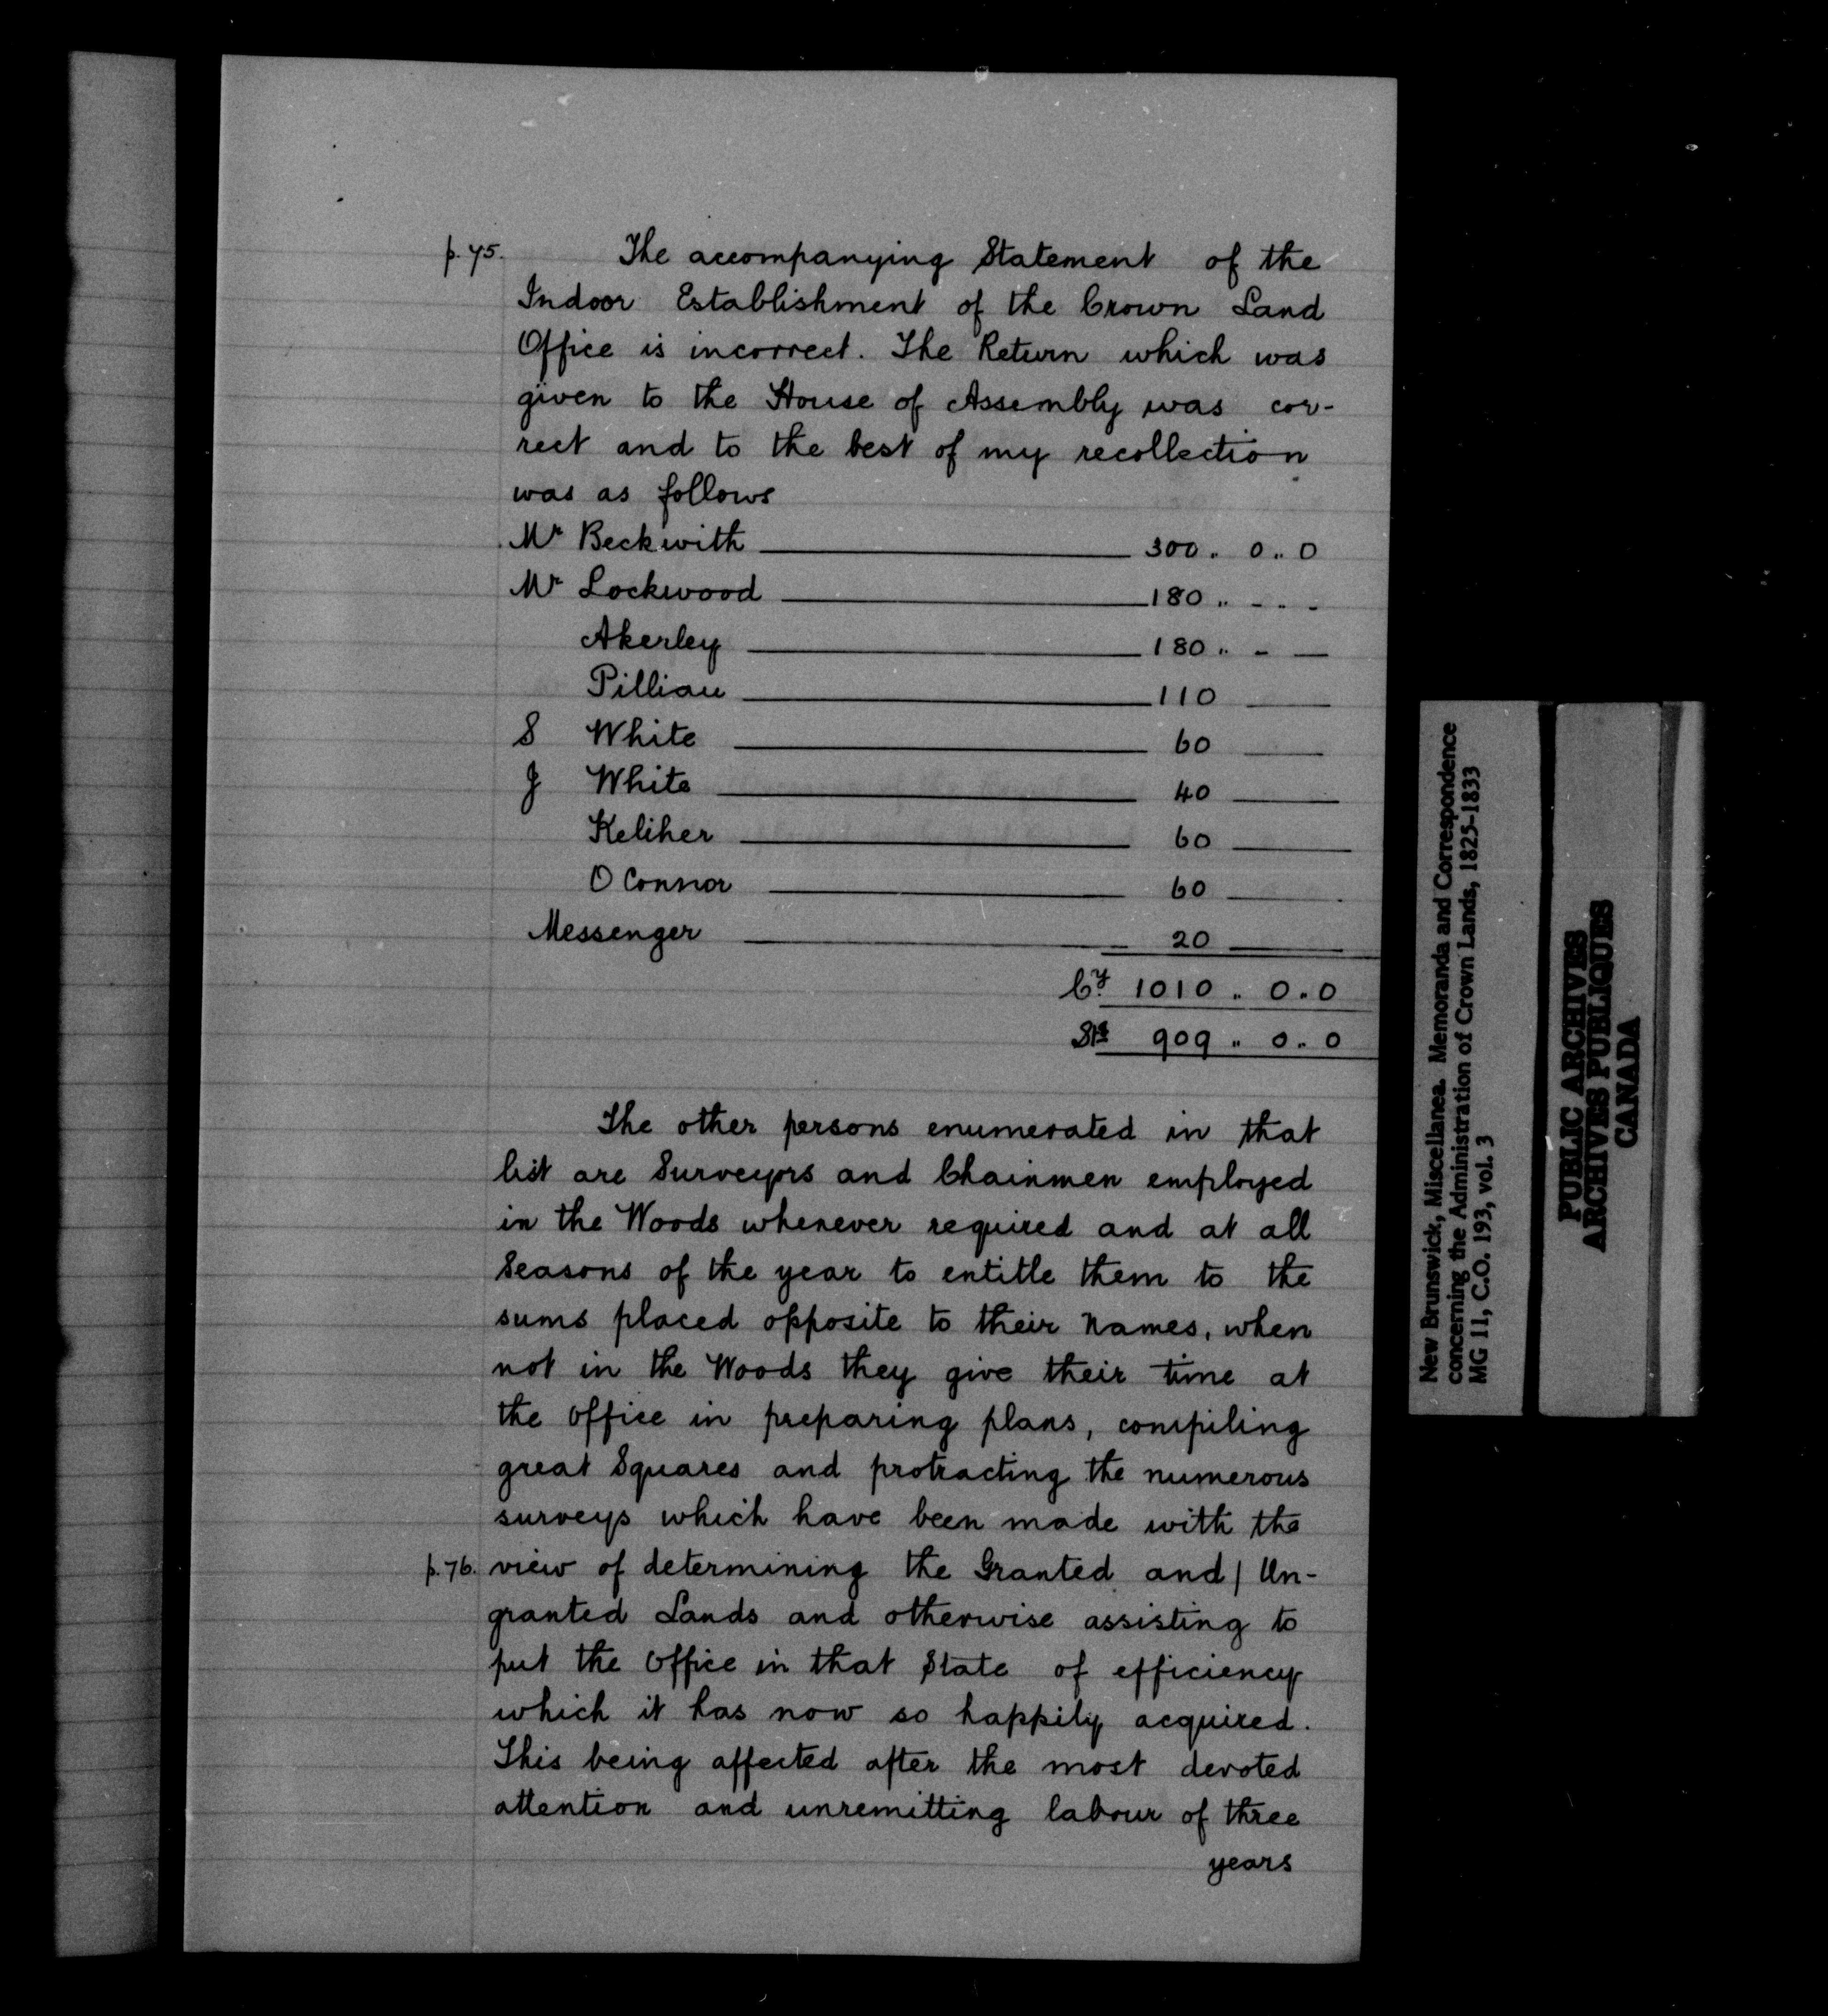 p. 75. The accompanying Statement of the
Indoor Establishment of the Crown Land
Office is incorrect. The Return which was
given to the House of Assembly was cor-
rect and to the best of my recollection
was as follows
Mr Beckwith 300 .. 0 .. 0
Mr Lockwood 180 .. - . -
Akerley 180 .. - —
Pilliau 110 —
S White 60 —
J White 40 —
Keliher 60 —
O Connor 60 —
Messenger 20 —
Cy 1010 .. 0 . 0
Stg 909 .. 0 .. 0
The other persons enumerated in that
list are Surveyors and Chainmen employed
in the Woods whenever required and at all
Seasons of the year to entitle them to the
sums placed opposite to their Names, when
not in the Woods they give their time at
the Office in preparing plans, compiling
great Squares and protracting the numerous
surveys which have been made with the
p. 76. view of determining the Granted and / Un-
granted Lands and otherwise assisting to
put the Office in that State of efficiency
which it has now so happily acquired.
This being affected after the most devoted
attention and unremitting labour of three
years
New Brunswick, Miscellanea. Memoranda and Correspondence
concerning the Administration of Crown Lands, 1825-1833
MG 11, C.O. 193, vol. 3
PUBLIC ARCHIVES
ARCHIVES PUBLIQUES
CANADA